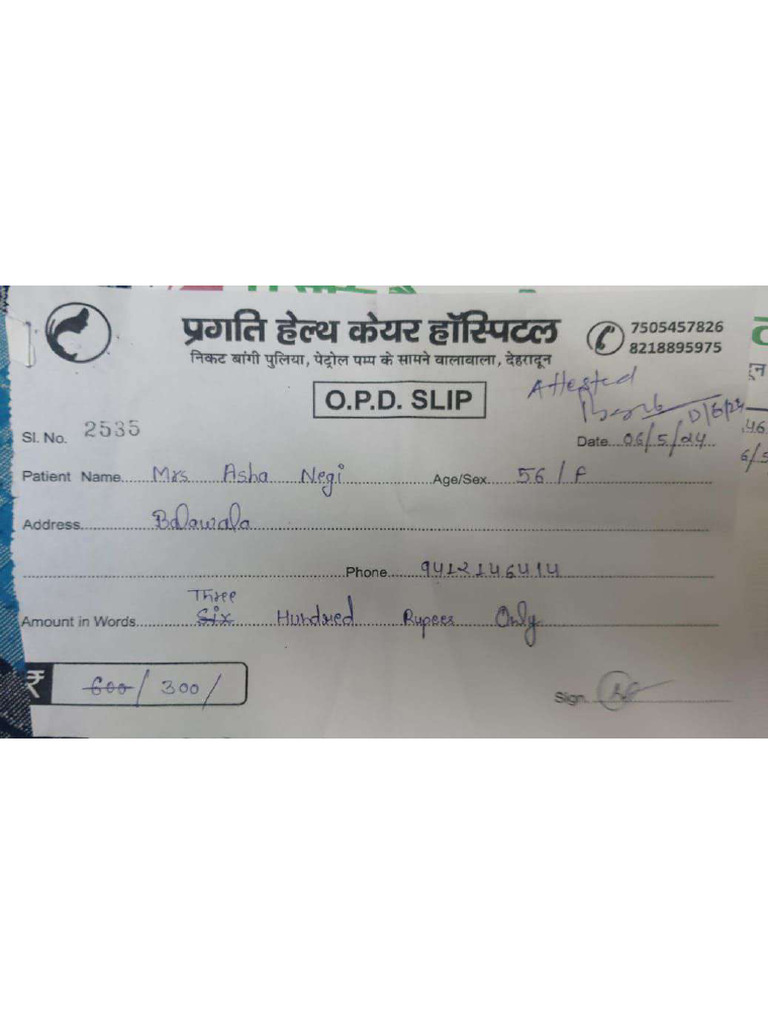 प्रगति हेल्थ केयर हॉस्पिटल
7505457826
8218895975
निकट बांगी पुलिया, पेट्रोल पम्प के सामने वालावाला, देहरादून
O.P.D. SLIP
Attested
Sl. No. 2535
Date 06/5/24
Patient Name Mrs Asha Negi Age/Sex 56/F
Address Balawala
Phone 9412146414
Three
Amount in Words Six Hundred Rupees Only
₹ 600/ 300/
Sign.